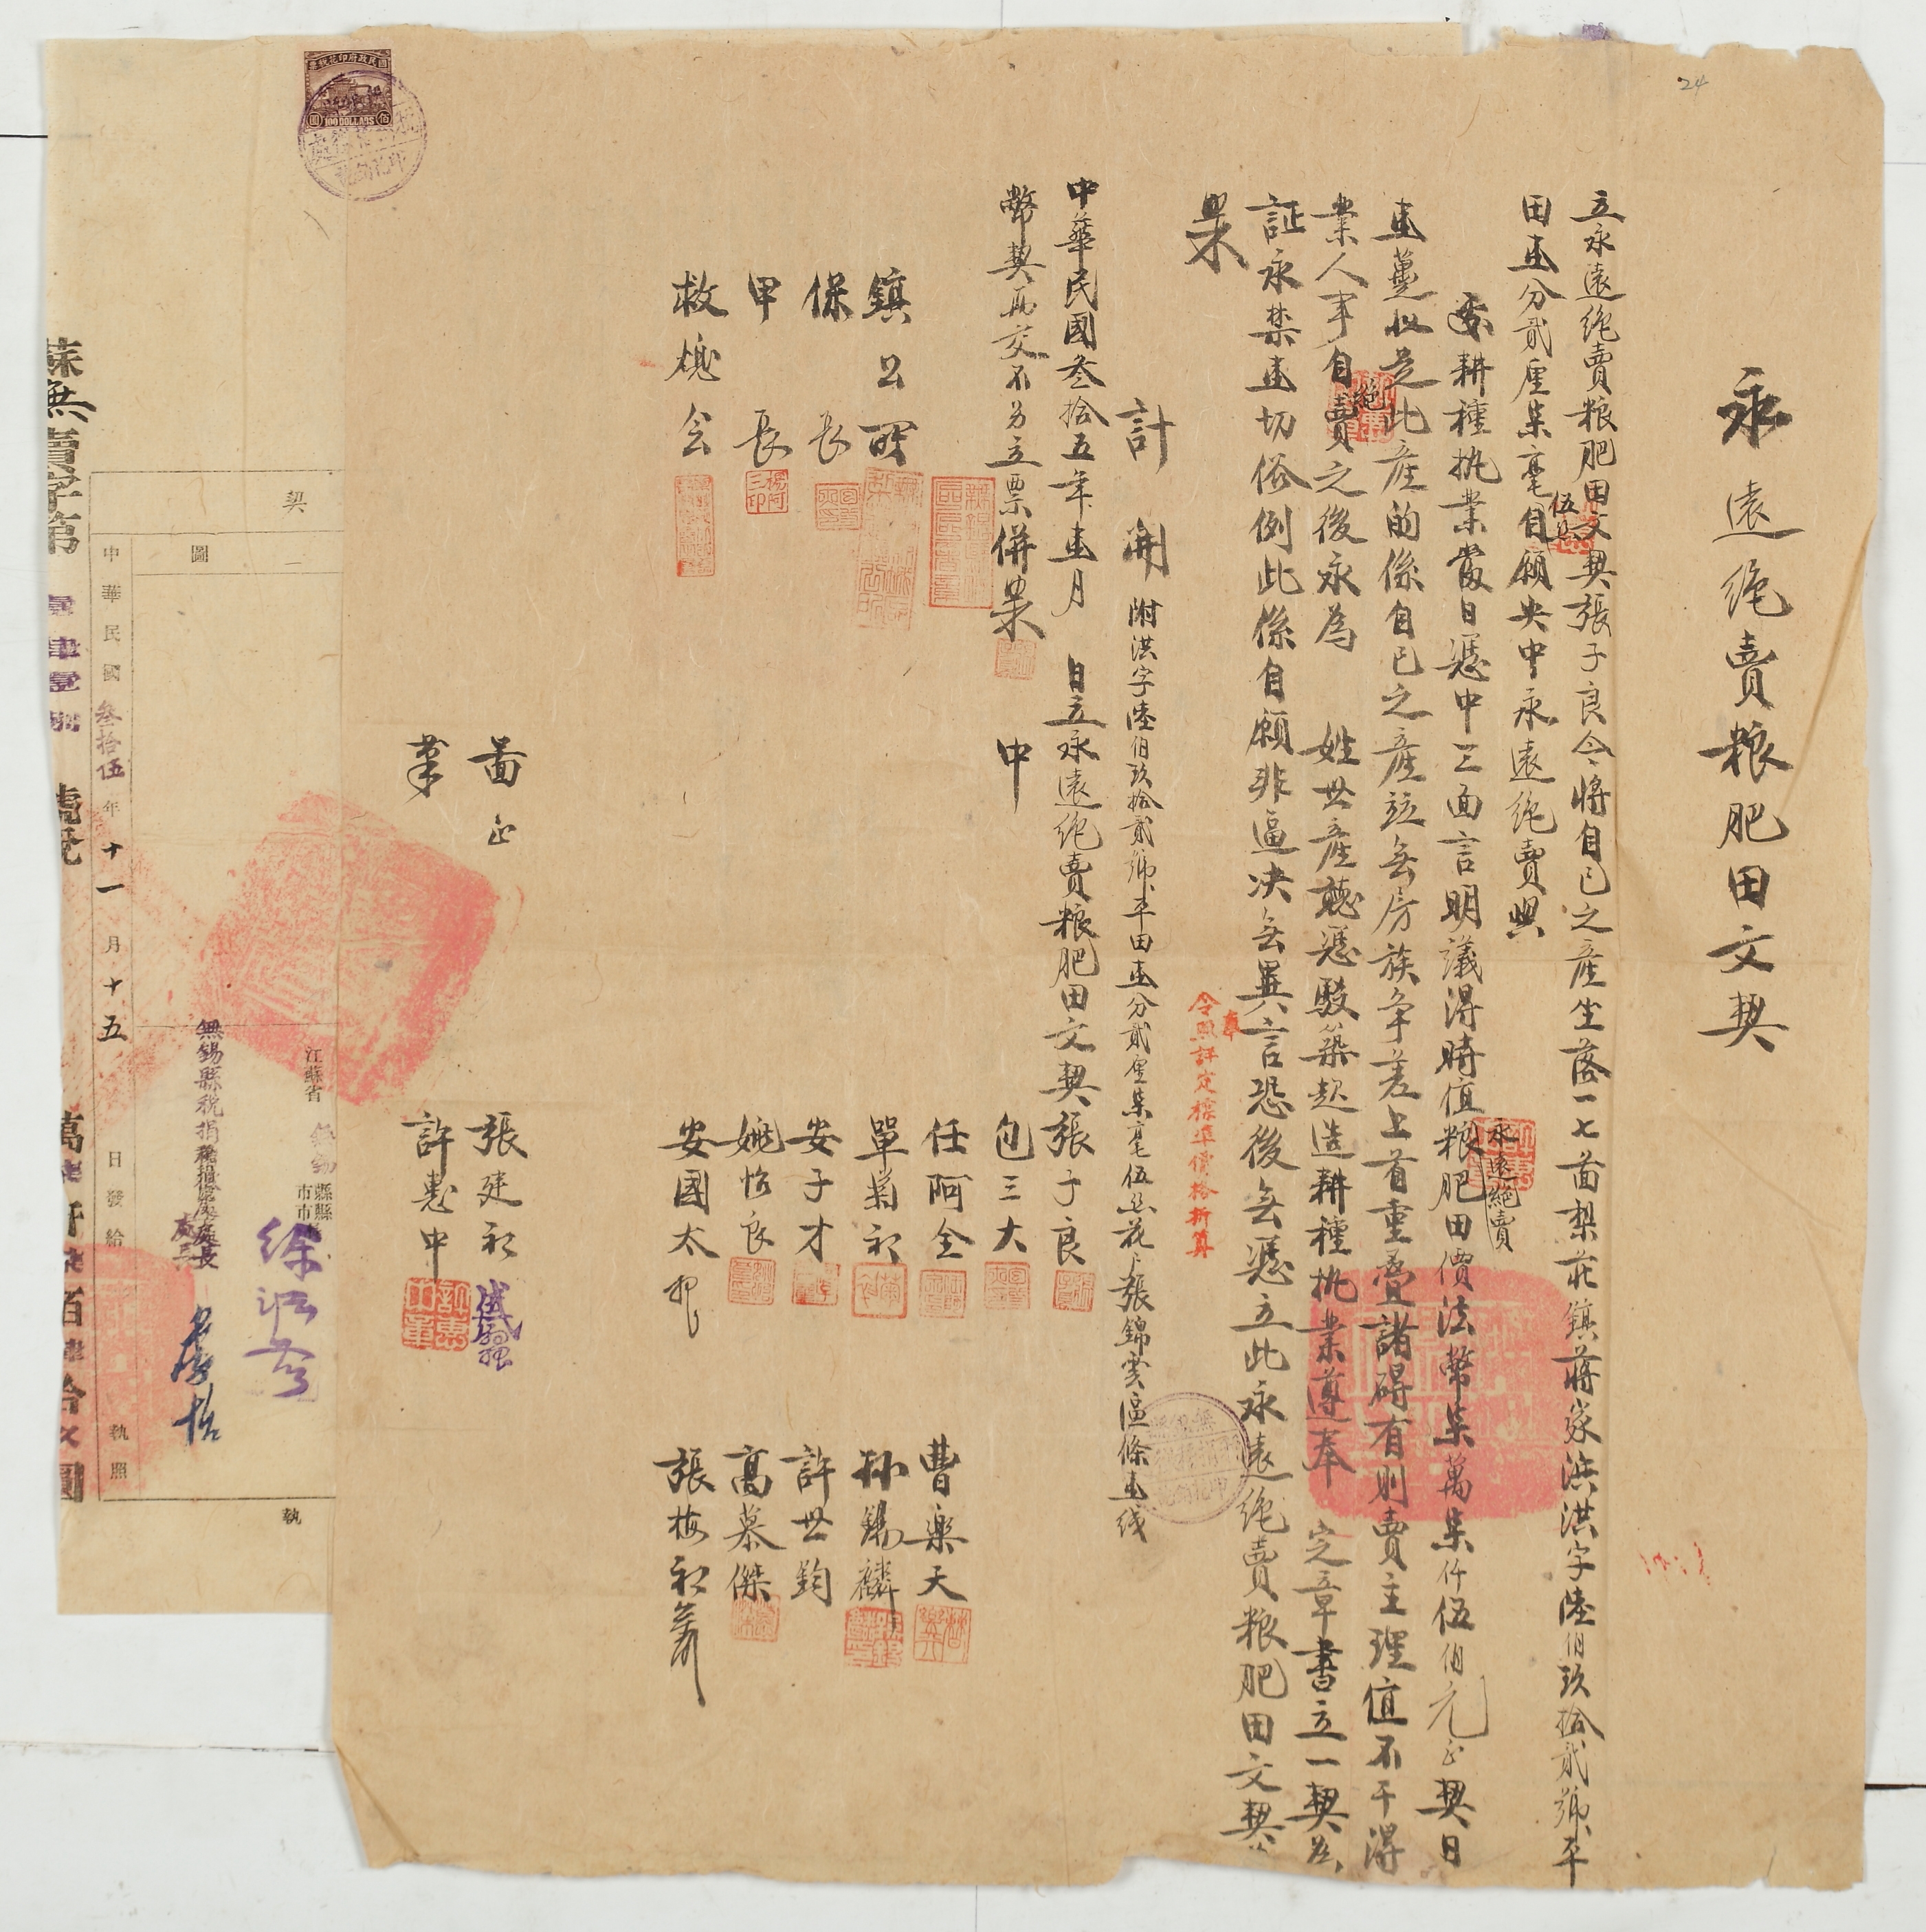 24
永遠絶賣粮肥田文契
立永遠絶賣粮肥田文契張子良今將自己之產坐落一七啚梨莊鎮蔣家浜洪字陸伯玖拾貳號平
田壹分貳厘柒毫伍丝自願央中永遠絶賣與
處耕種执業當日憑中三面言明議得時值永遠絕賣粮肥田價法幣柒萬柒仟伍伯元正契日
壹薹收足此產的係自己之產並無房族爭差上首重疊諸碍有則賣主理值不干得
業人事自絕賣之後永為 姓世產聽憑駁築起造耕種执業遵奉 定章書立一契爲
証永禁壹切俗例此係自願非逼决無異言恐後無憑立此永遠絶賣粮肥田文契
計開 附洪字陸伯玖拾貳號平田壹分貳厘柒毫伍丝花户張錦雲區條壹线
奉令照評定標準價格折算
中華民國叁拾五年壹月 日立永遠絶賣粮肥田文契張子良
幣契两交不另立票併果 中 包三大
任阿全 曹樂天
鎮公所 單菊初 孙錫麟
保長 安子才 許世鈞
甲長 姚怡良 高慕傑
救熄会 安國太押 張梅初
啚正 張建初
筆 許惠中
國民政府印花稅票
100 DOLLARS
佰圓
契
圖
執
江蘇省
無錫
縣縣
市市
無錫縣稅捐稽徵處處長
中華民國叁拾伍年十一月十五日發給 執照
蘇無賣字第